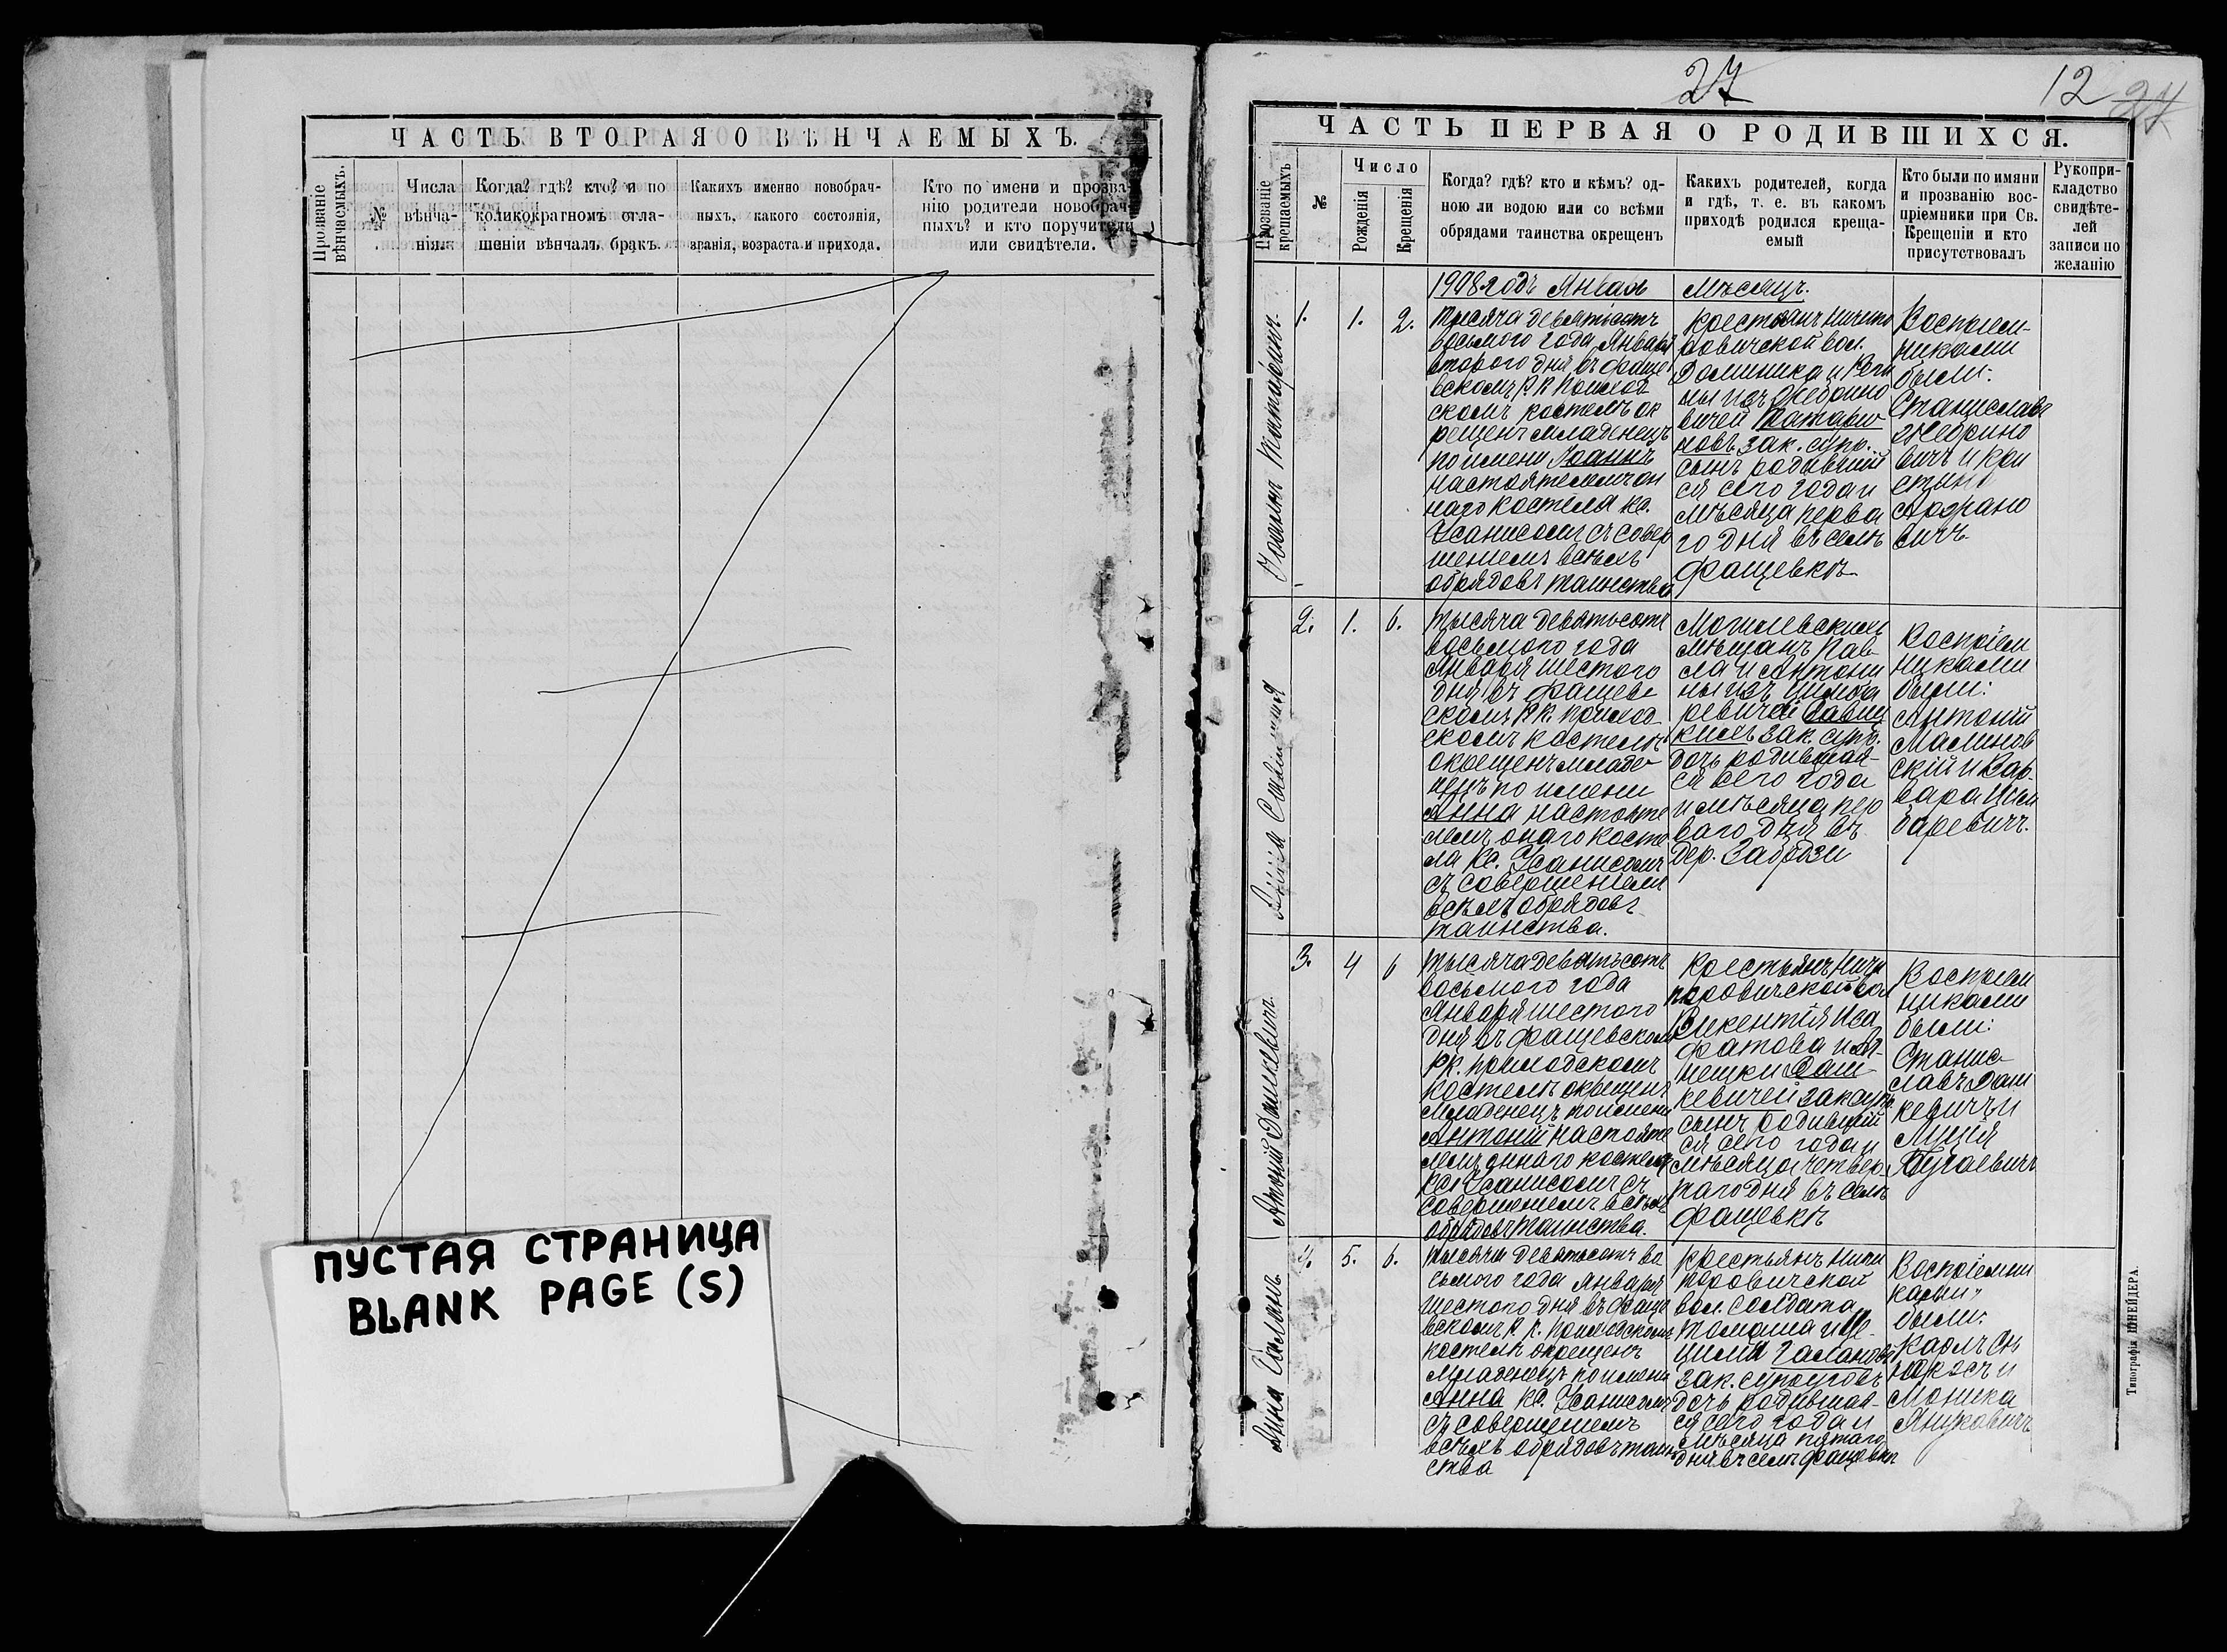 ЧАСТЬ ВТОРАЯ О ВѢНЧАЕМЫХЪ.
Прозваніе вѣнчаемыхъ.
№
Числа
вѣнча-
нія
Когда? гдѣ? кто? и по
коликократномъ огла-
шеніи вѣнчалъ бракъ.
Какихъ именно новобрач-
ныхъ, какого состоянія,
званія, возраста и прихода.
Кто по имени и прозва-
нію родители новобрач-
ныхъ? и кто поручители
или свидѣтели.
ПУСТАЯ СТРАНИЦА
BLANK PAGE (S)
27
12
27
ЧАСТЬ ПЕРВАЯ О РОДИВШИХСЯ.
Прозваніе
крещаемыхъ
№
Число
Рожденія
Крещенія
Когда? гдѣ? кто и кѣмъ? од-
ною ли водою или со всѣми
обрядами таинства окрещенъ
Какихъ родителей, когда
и гдѣ, т. е. въ какомъ
приходѣ родился креща-
емый
Кто были по имяни
и прозванію вос-
пріемники при Св.
Крещеніи и кто
присутствовалъ
Рукопри-
кладство
свидѣте-
лей
записи по
желанію
1908 годъ Январь Мѣсяцъ.
1.
1.
2.
Тысяча девятьсотъ
восьмого года Января
второго дня въ Фаще
вскомъ Р. К. Приход
скомъ костелѣ ок
рещенъ младенецъ
по имени Іоаннъ
настоятелемъ он
наго костела кс.
съ совер
шеніемъ всѣхъ
обрядовъ таинства
Крестьянъ Ничипо
ровичской вол.
Доминика и Реги
ны изъ Жебрино
вичей
зак. супр.
сынъ родившій
ся сего года и
мѣсяца перва
го дня въ селѣ
Фащевкѣ
Воспріем-
никами
были:
Станиславъ
Жебрино
вичъ и Кри
стина
2.
1.
6.
Тысяча девятьсотъ
восьмого года
Января шестого
дня въ Фащев
скомъ Р. К. приход
скомъ костелѣ
окрещенъ младе
нецъ по имени
Анна настояте
лемъ онаго косте
ла кс.
съ совершеніемъ
всѣхъ обрядовъ
таинства.
Могилевскихъ
мѣщанъ Пав
ла и Антони
ны изъ
Савиц
кихъ зак. супр.
дочь родившая-
ся сего года
и мѣсяца пер
ваго дня въ
дер.
Воспріем
никами
были:
Антоній
Малинов
скій и Вар-
вара
3.
4
6
Антоній Дашкевичъ
Тысяча девятьсотъ
восьмого года
Января шестого
дня въ Фащевскомъ
Р. К. приходскомъ
костелѣ окрещенъ
младенецъ по имени
Антоній настояте
лемъ оннаго костела
кс. съ
совершеніемъ всѣхъ
обрядовъ таинства.
Крестьянъ Ничи
поровичской вол
Викентія
и Аг-
нешки Даш
кевичей зак супр.
сынъ родившій
ся сего года и
мѣсяца четвер
таго дня въ селѣ
Фащевкѣ
Воспріем
никами
были:
Станис
лавъ Даш
кевичъ и
Луція
4.
5.
6.
Тысяча девятьсотъ во
сьмого года Января
шестого дня въ Фаще
вскомъ Р. К. приходскомъ
костелѣ окрещенъ
младенецъ по имени
Анна кс.
съ совершеніемъ
всѣхъ обрядовъ таин
ства
Крестьянъ Ничи
поровичской
вол. солдата
Томаша и Це-
циліи
зак. супруговъ
дочь родившая-
ся сего года и
мѣсяца пятаго
дня въ селѣ Фащевкѣ
Воспріемни
ками
были:
Карлъ
и
Моника
Янукович
Типографія ШНЕЙДЕРА.